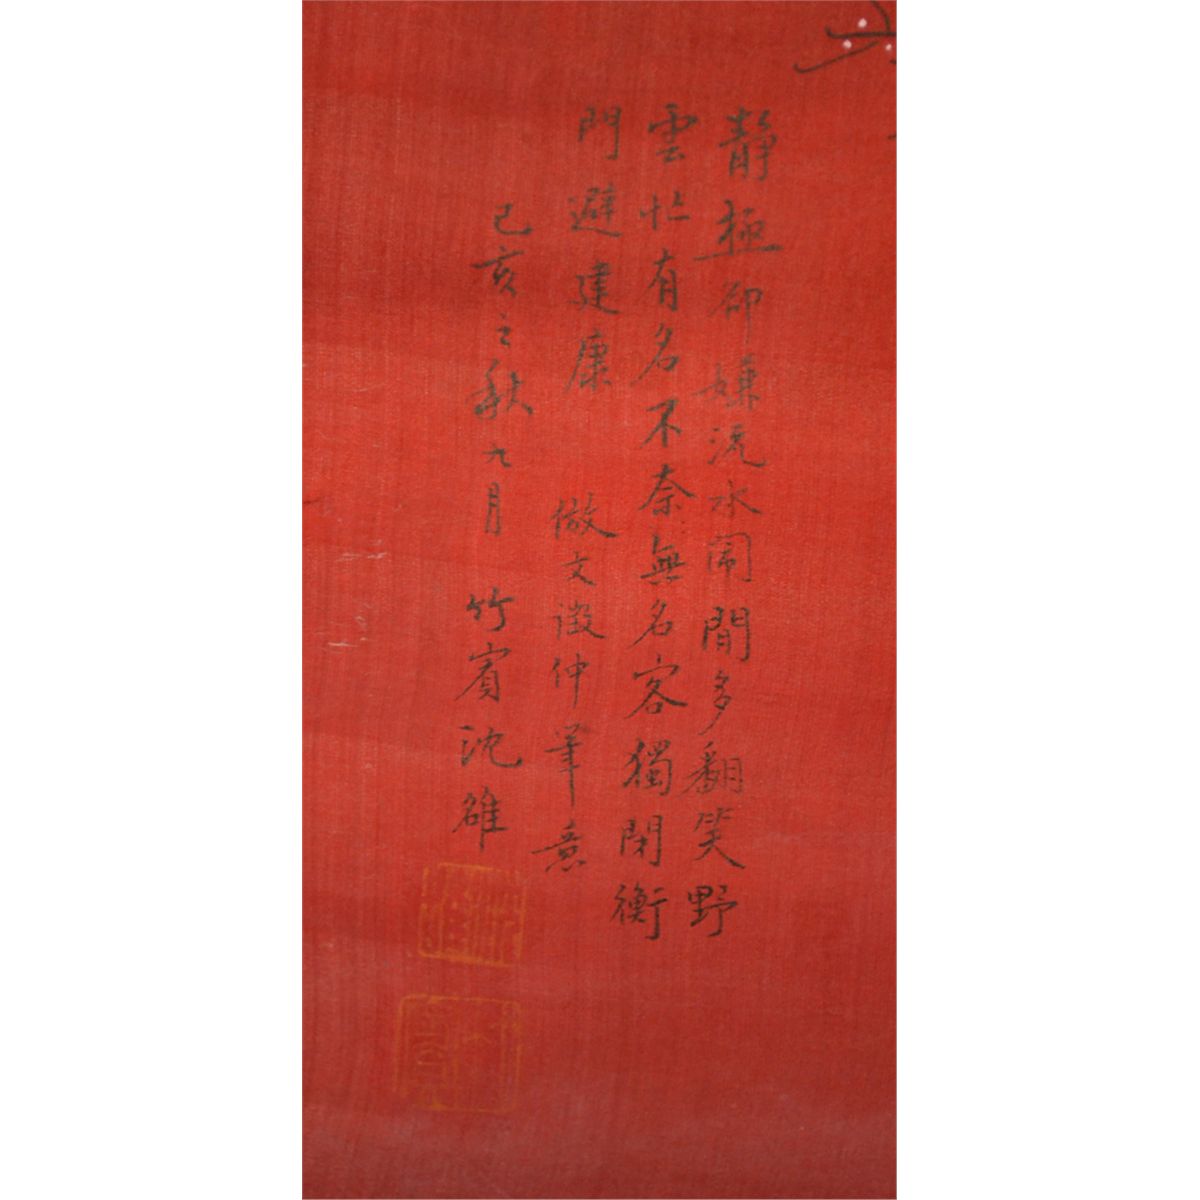 靜極却嫌流水鬧閒多翻笑野
雲忙有名不奈無名客獨閉衡
門避建康
倣文徵仲筆意
己亥之秋九月竹賓沈雄